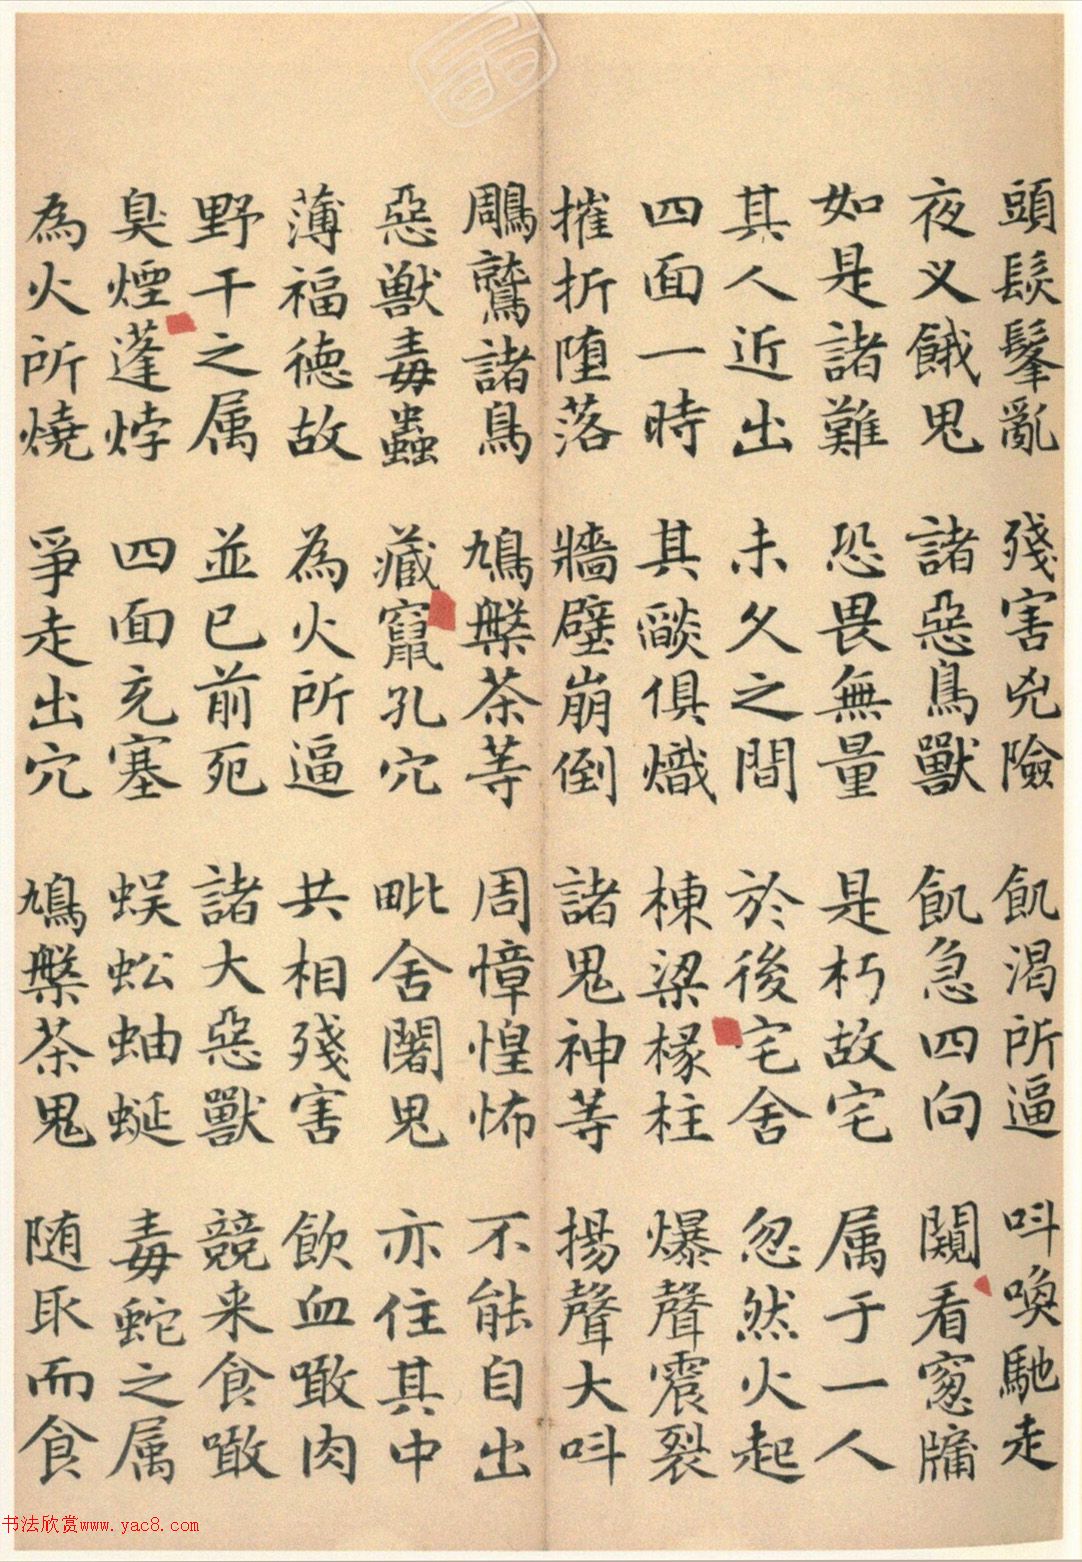 頭髮髼亂 殘害兇險 飢渴所逼 叫喚馳走
夜叉餓鬼 諸惡鳥獸 飢急四向 闚看窓牖
如是諸難 恐畏無量 是朽故宅 属于一人
其人近出 未久之間 於後宅舍 忽然火起
四面一時 其燄俱熾 棟梁椽柱 爆聲震裂
摧折堕落 牆壁崩倒 諸鬼神等 揚聲大叫
鵰鷲諸鳥 鳩槃茶等 周慞惶怖 不能自出
惡獸毒蟲 藏竄孔穴 毗舍闍鬼 亦住其中
薄福德故 為火所逼 共相殘害 飲血噉肉
野干之属 並已前死 諸大惡獸 競来食噉
臭煙蓬㶿 四面充塞 蜈蚣蚰蜒 毒蛇之属
為火所燒 爭走出穴 鳩槃茶鬼 随取而食
书法欣赏www.yac8.com